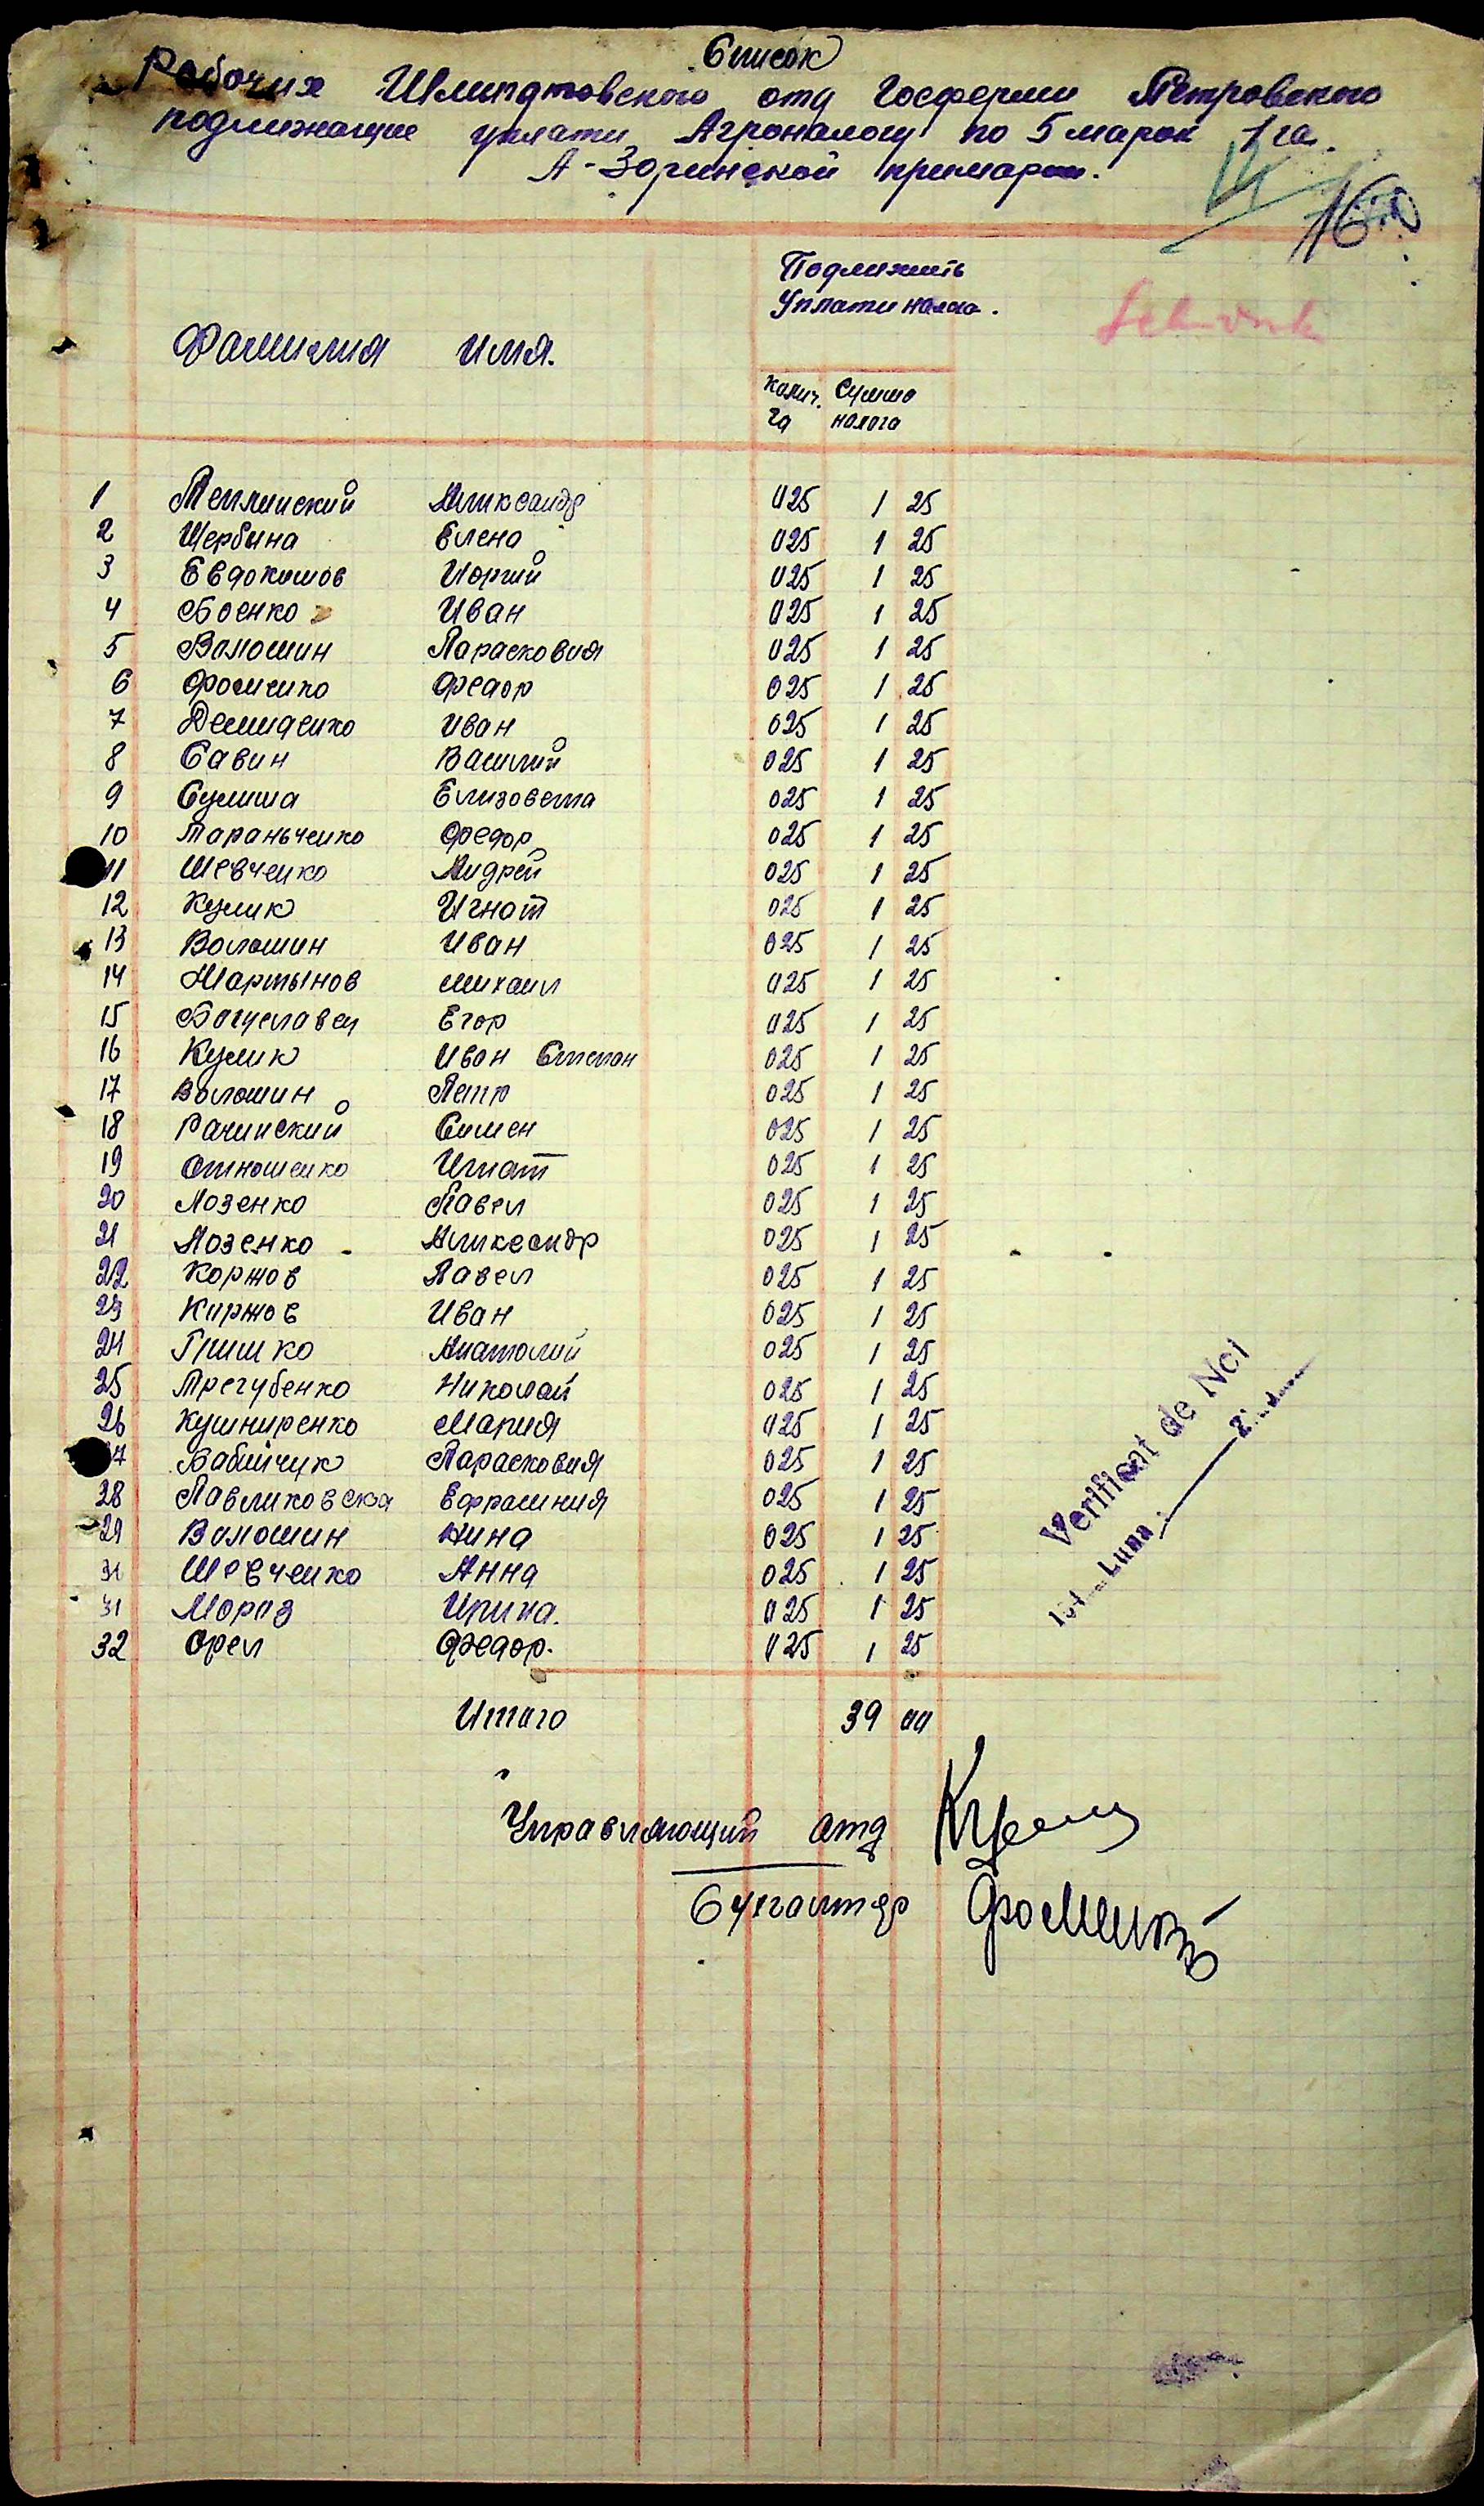 Список
Рабочих Шмитдтовского отд Госфермы Петровского
подлижащие уплати Агроналогу по 5 марок 1 га.
А-Зоринской примари.
160
Подлижить
Уплати налога.
Фамилия Имя.
Колич. Сумма
га налога
1 Теплинский Аликсандр 025 1 25
2 Щербина Елена 025 1 25
3 Евдокимов Иоргий 025 1 25
4 Боенко Иван 025 1 25
5 Волошин Парасковия 025 1 25
6 Фоменко Федор 025 1 25
7 Демиденко Иван 025 1 25
8 Савин Василий 025 1 25
9 Сулима Елизовета 025 1 25
10 Тараньченко Федор 025 1 25
11 Шевченко Андрей 025 1 25
12 Кулик Игнат 025 1 25
13 Волошин Иван 025 1 25
14 Мартынов Михаил 025 1 25
15 Богуславец Егор 025 1 25
16 Кулик Иван Степан 025 1 25
17 Волошин Петр 025 1 25
18 Рачинский Симен 025 1 25
19 Отношенко Игнат 025 1 25
20 Лозенко Павел 025 1 25
21 Лозенко Аликсандр 025 1 25
22 Коржов Павел 025 1 25
23 Киржов Иван 025 1 25
24 Гришко Анатолий 025 1 25
25 Трегубенко Николай 025 1 25
26 Кушниренко Мария 025 1 25
27 Бабийчук Парасковия 025 1 25
28 Павликовска Ефрасиния 025 1 25
29 Волошин Нина 025 1 25
31 Шевченко Анна 025 1 25
31 Мороз Ирина. 025 1 25
32 Орел Федор. 025 1 25
Итого 39 00
Verificat de Noi
Luna
Управляющий отд
Бухгалтер Фоменко